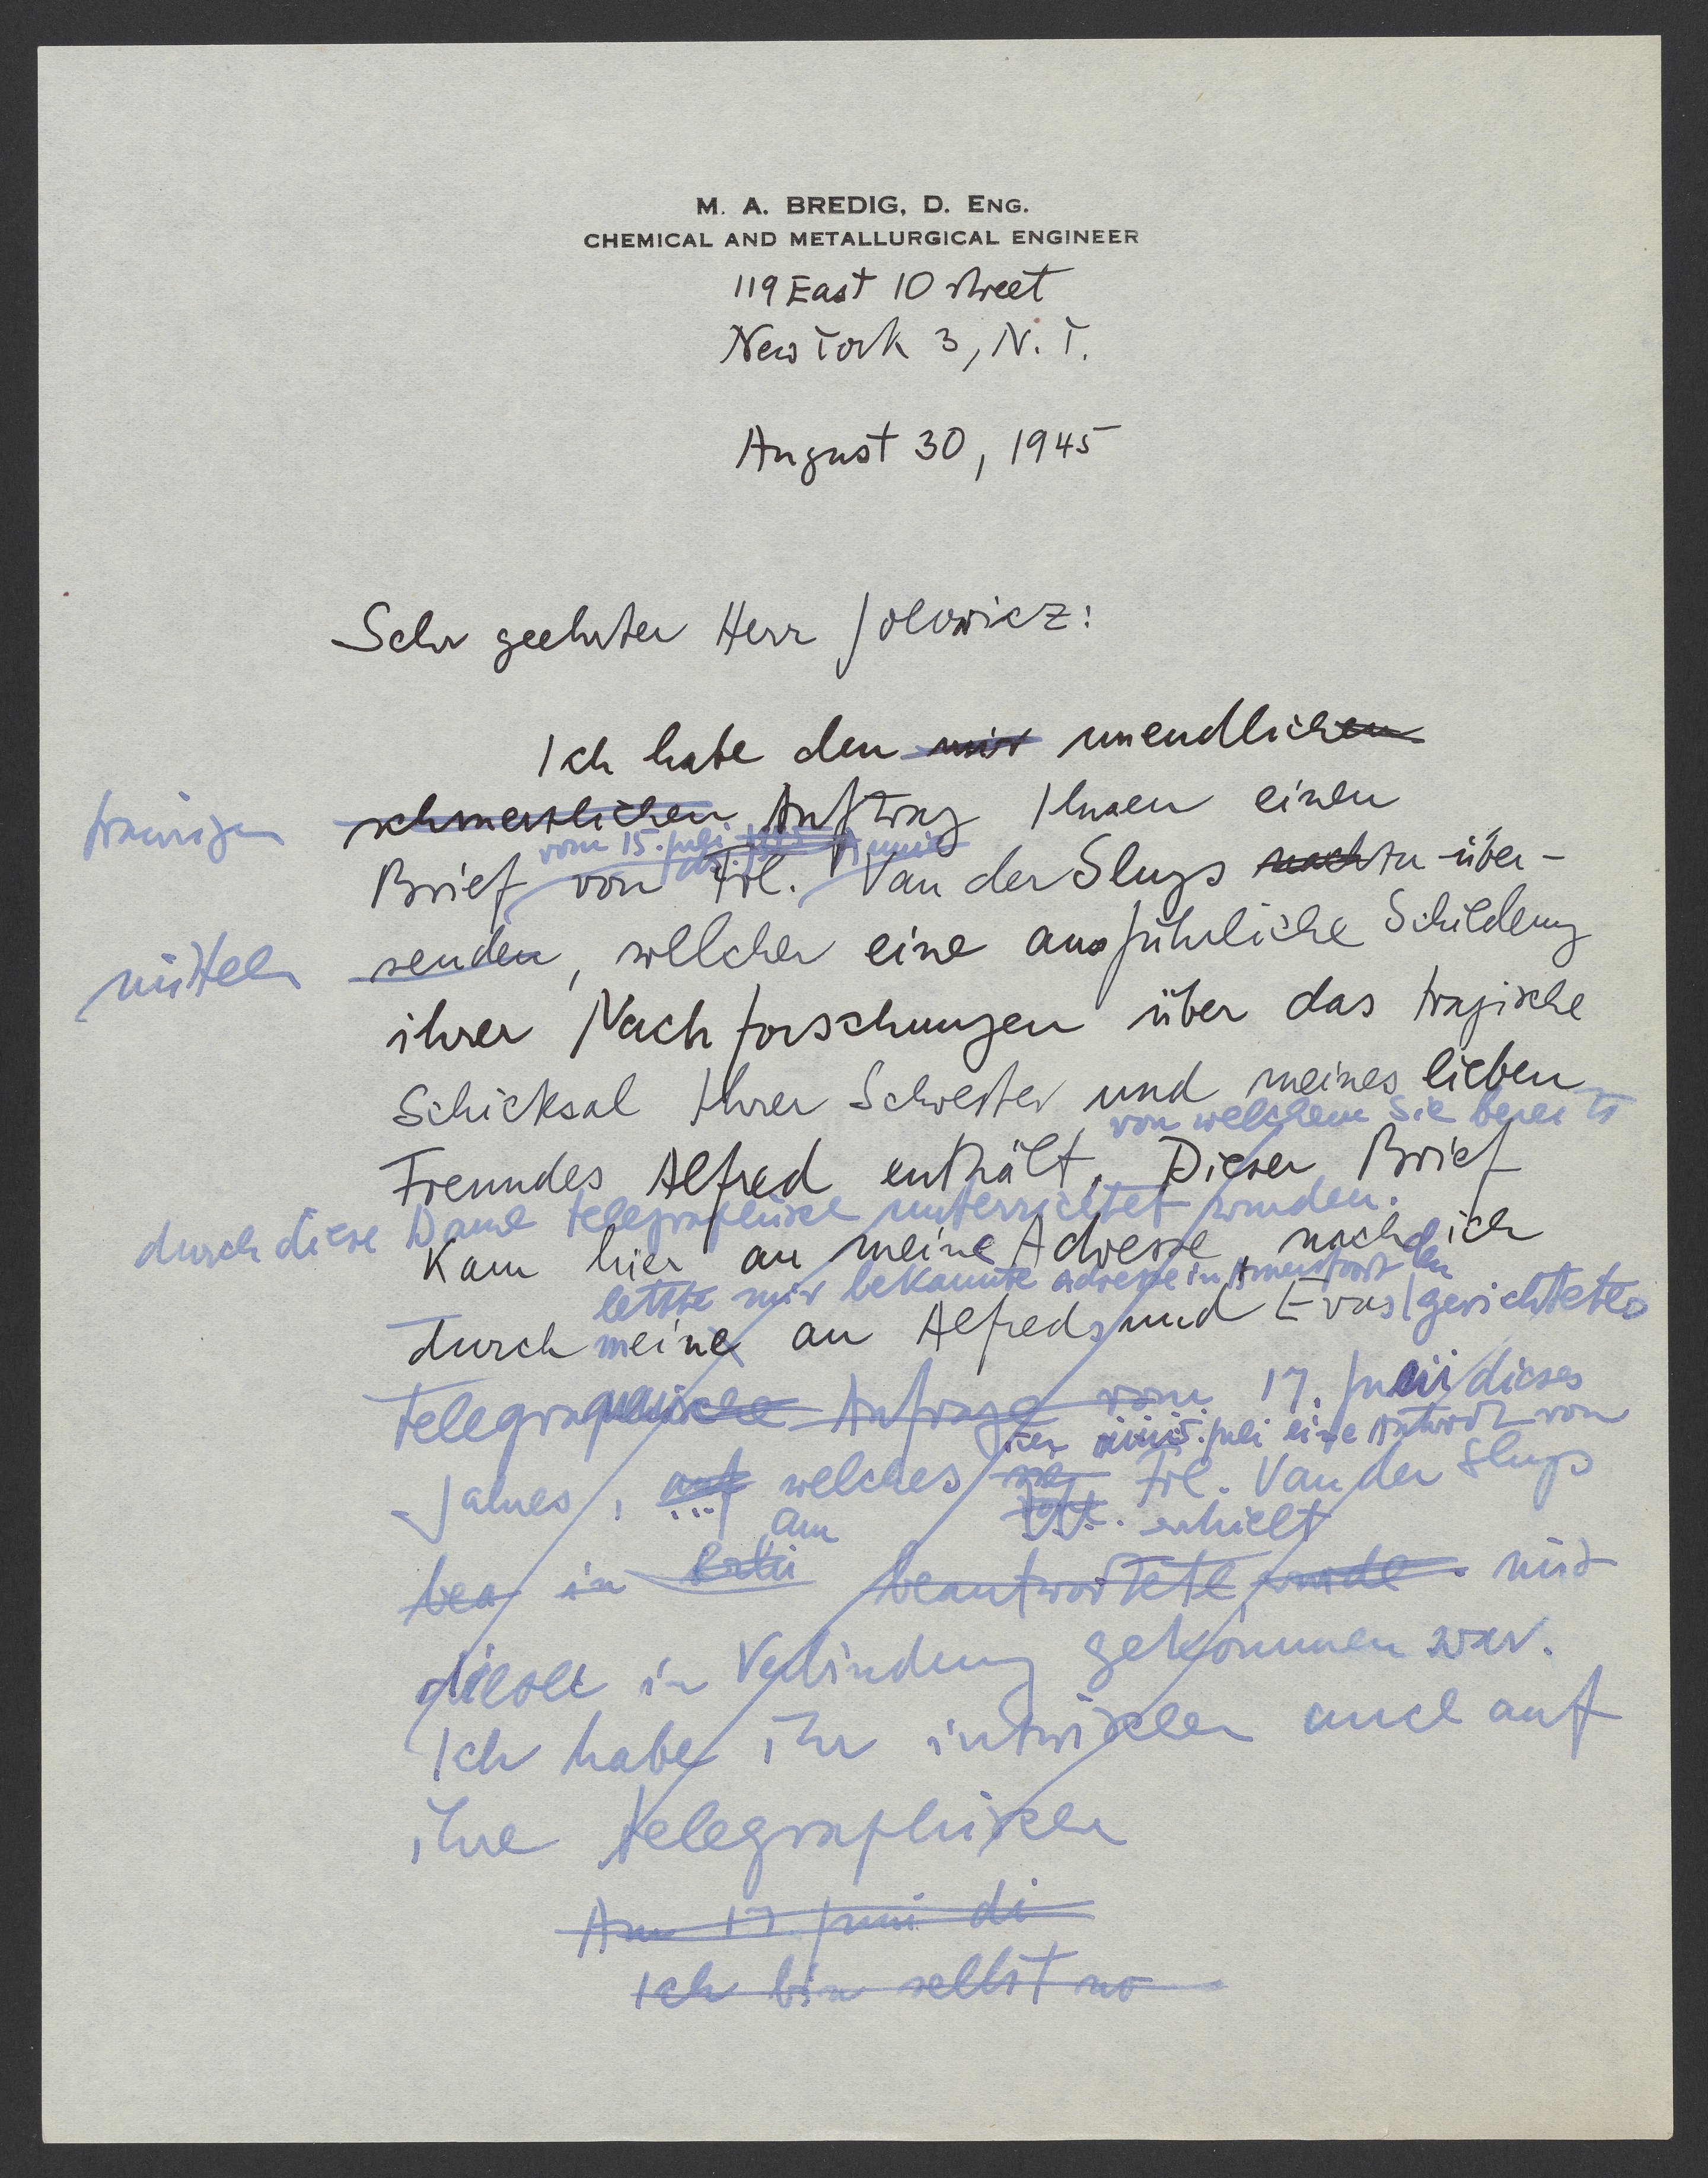 M. A. BREDIG, D. ENG.
CHEMICAL AND METALLURGICAL ENGINEER
119 East 10 street
New York 3, N. Y.
August 30, 1945
Sehr geehrter Herr Jolowicz:
Ich habe den mir unendlichen
traurigen schmerzlichen Auftrag Ihnen einen
vom 15. Juli 1945 Annie
Brief von Frl. Van der Sluys nach zu über-
mitteln senden, welcher eine ausführliche Schilderung
ihrer Nachforschungen über das tragische
Schicksal Ihrer Schwester und meines lieben
von welchem Sie bereits
Freundes Alfred enthält. Dieser Brief
durch diese Dame telegraphisch unterrichtet wurden.
kam hier an meine Adresse, nachd ich
letzte mir bekannte Adresse in Amersfoort
durch meine an Alfreds und Evas gerichtetes
telegraphische Anfrage vom 17. Juni dieses
5. Juli eine Antwort von
Jahres, auf welches Frl. Van der Sluys
am erhielt
bea in beantwortete wurde mit
dieser in Verbindung gekommen war.
Ich habe ihr inzwischen auch auf
ihre telegraphischen
Am 17. Juni di
Ich bin selbst no